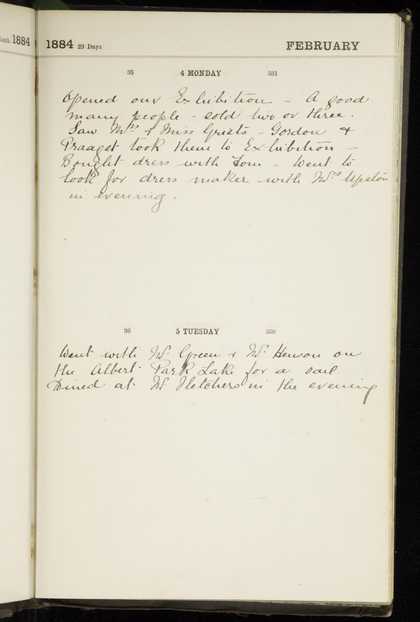 1884
1884 29 Days FEBRUARY
35 4 MONDAY 331
Opened our Exhibition – A good
many people – sold two or three.
Saw Mrs & Miss – Gordon &
took them to Exhibition –
Bought dress with Tom – Went to
look for dress maker with Mrs Upston
in evening.
36 5 TUESDAY 330
Went with Mr Green & Mr on
the Albert Park Lake for a sail
Dined at Mr Fletchers in the evening